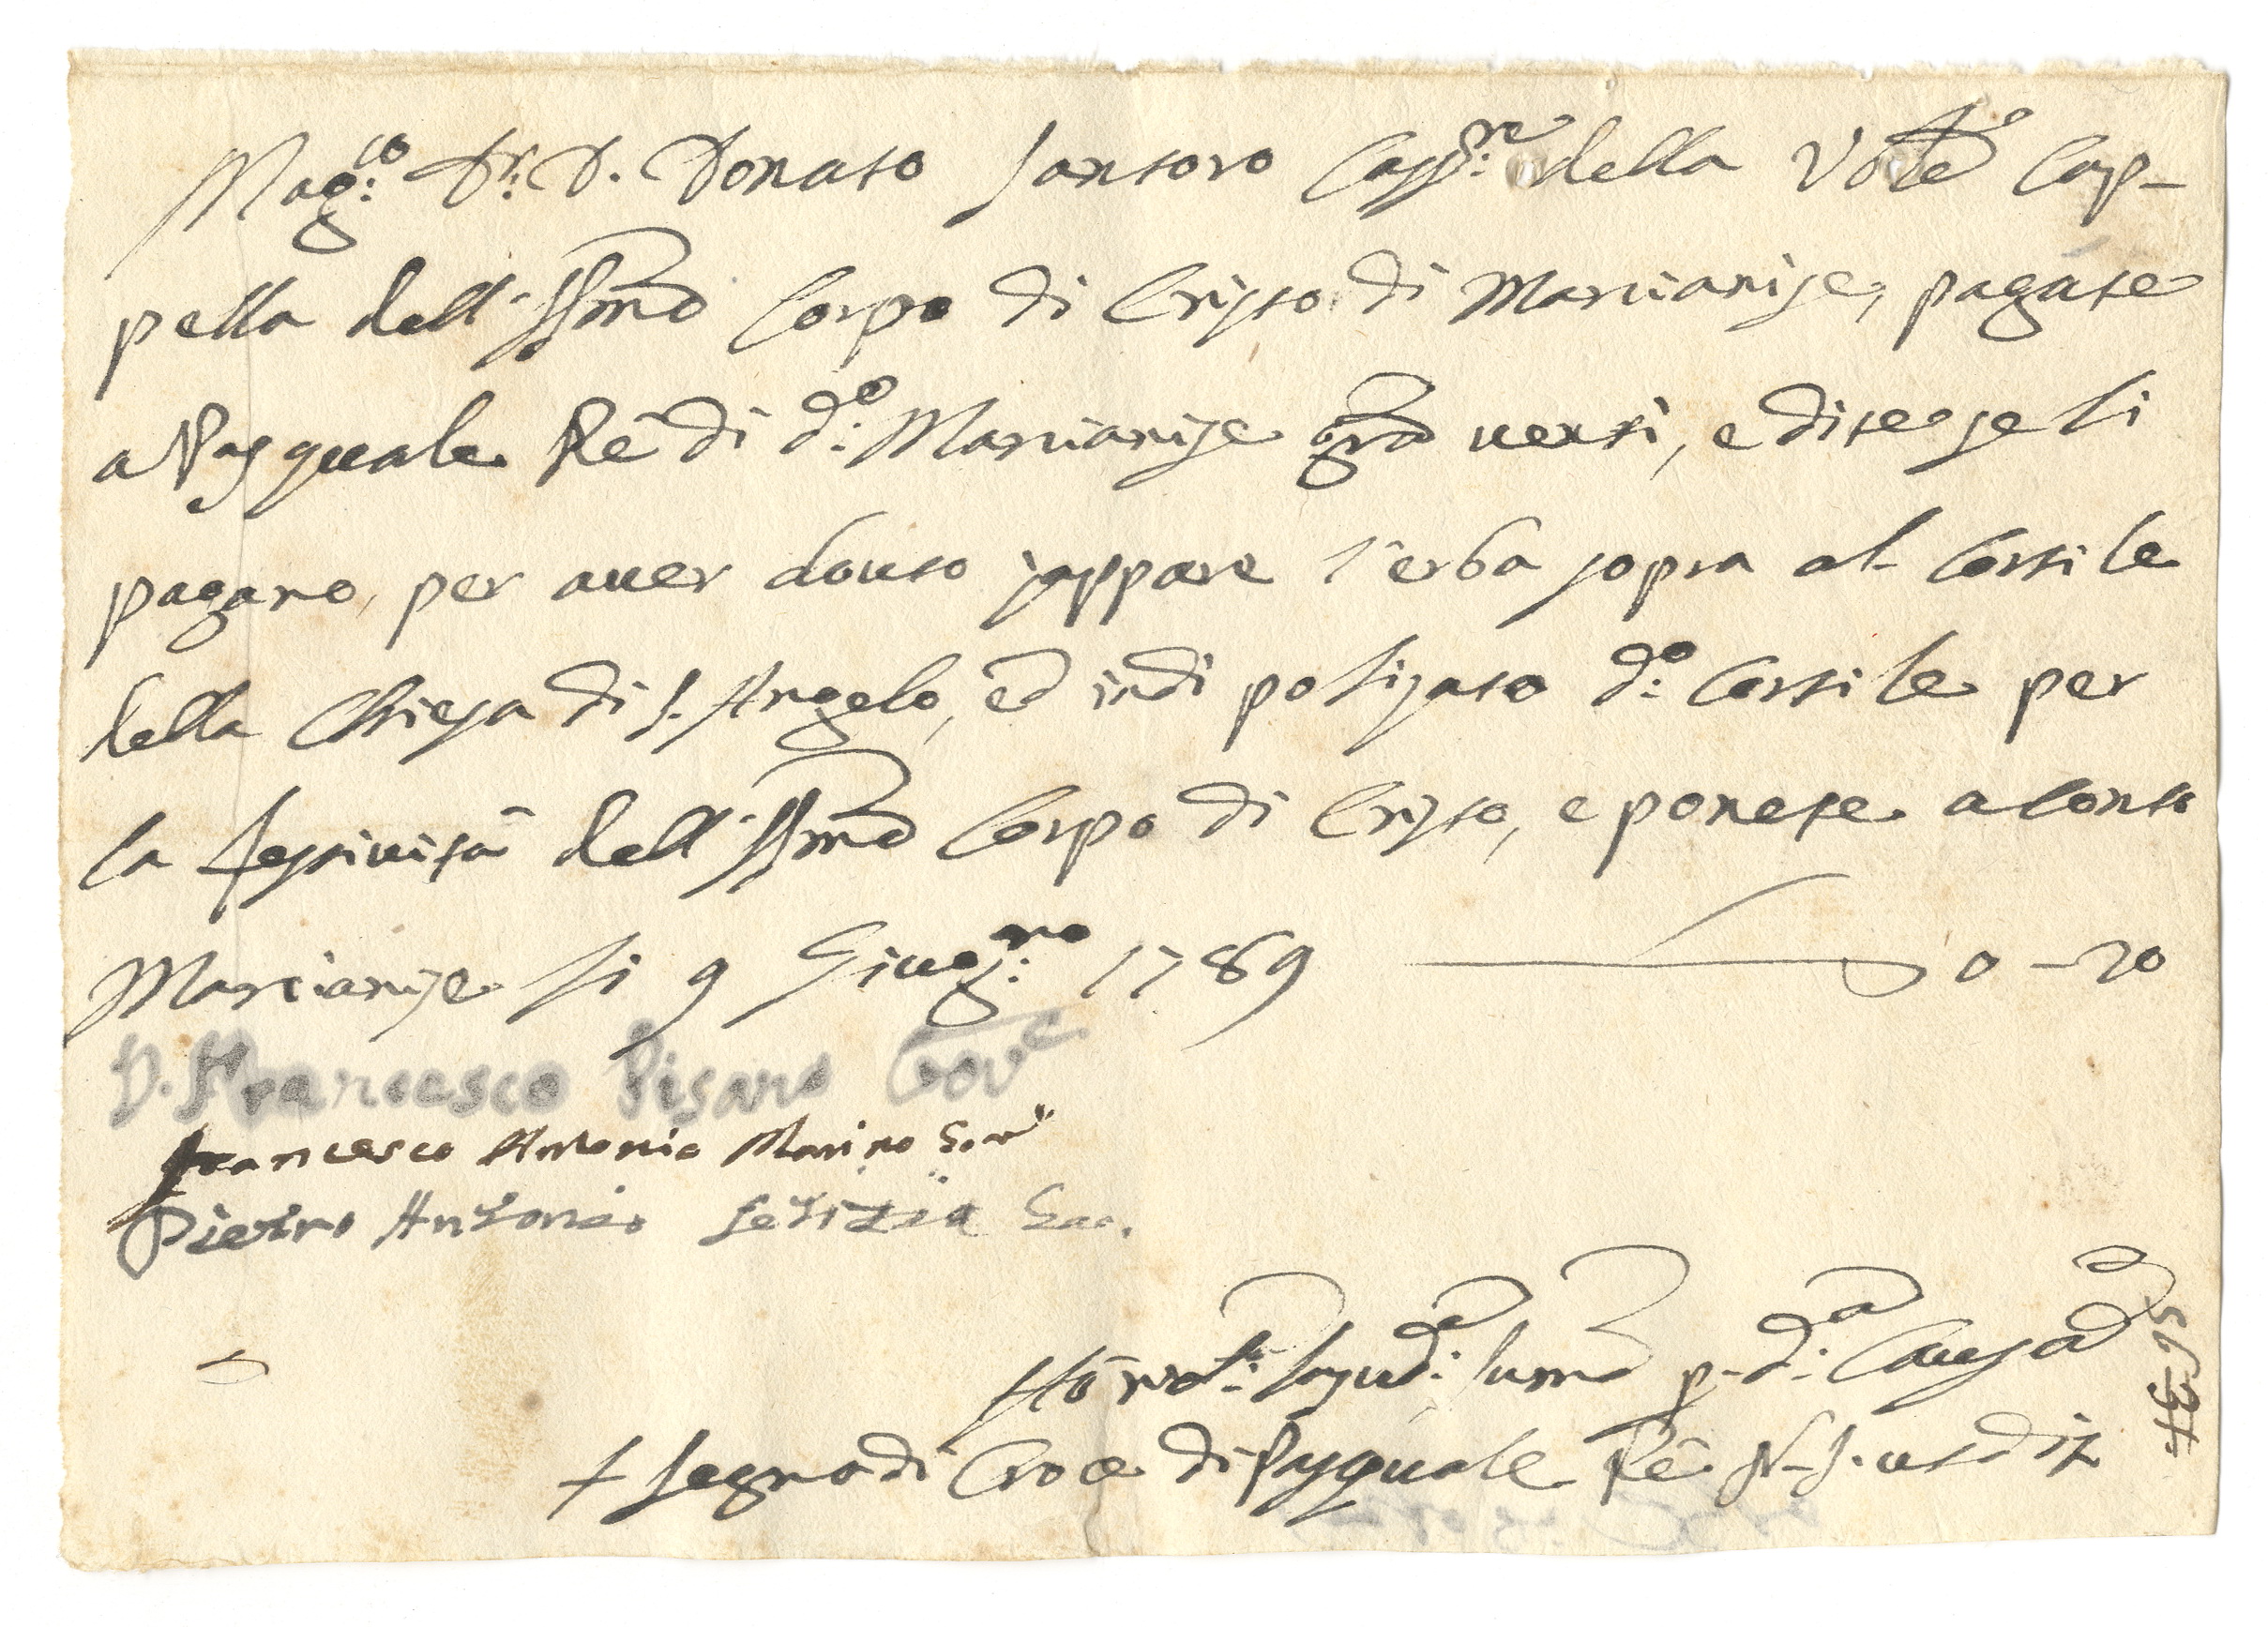 Mag:co Dr: D. Donato Santoro Cass:re della Vole Cap-
pella dell'SSmo Corpo di Cristo di Marcianise, pagate
a Pasquale Rè di d:o Marcianise gra venti, e dite se li
pagano, per aver dovuto zappare l'erba sopra al Cortile
della Chiesa di S. Angelo, ed indi polizato d:o Cortile per
la festività dell'SSmo Corpo di Cristo, e ponete a conto
Marcianise li 9 Giug:no 1789 0-20
D. Francesco Pisano Gov.e
Francesco Antonio Marino Gov
Pietro Antonio Letizia Gov.
Hò ric: la sud:a summa p. d:a Causa
+ Segno di Croce di Pasquale Rè N. S. ut dix